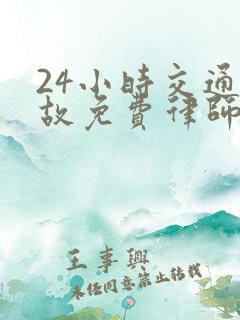 24小時交通
故免費律師
王事興
未经同意禁止转载